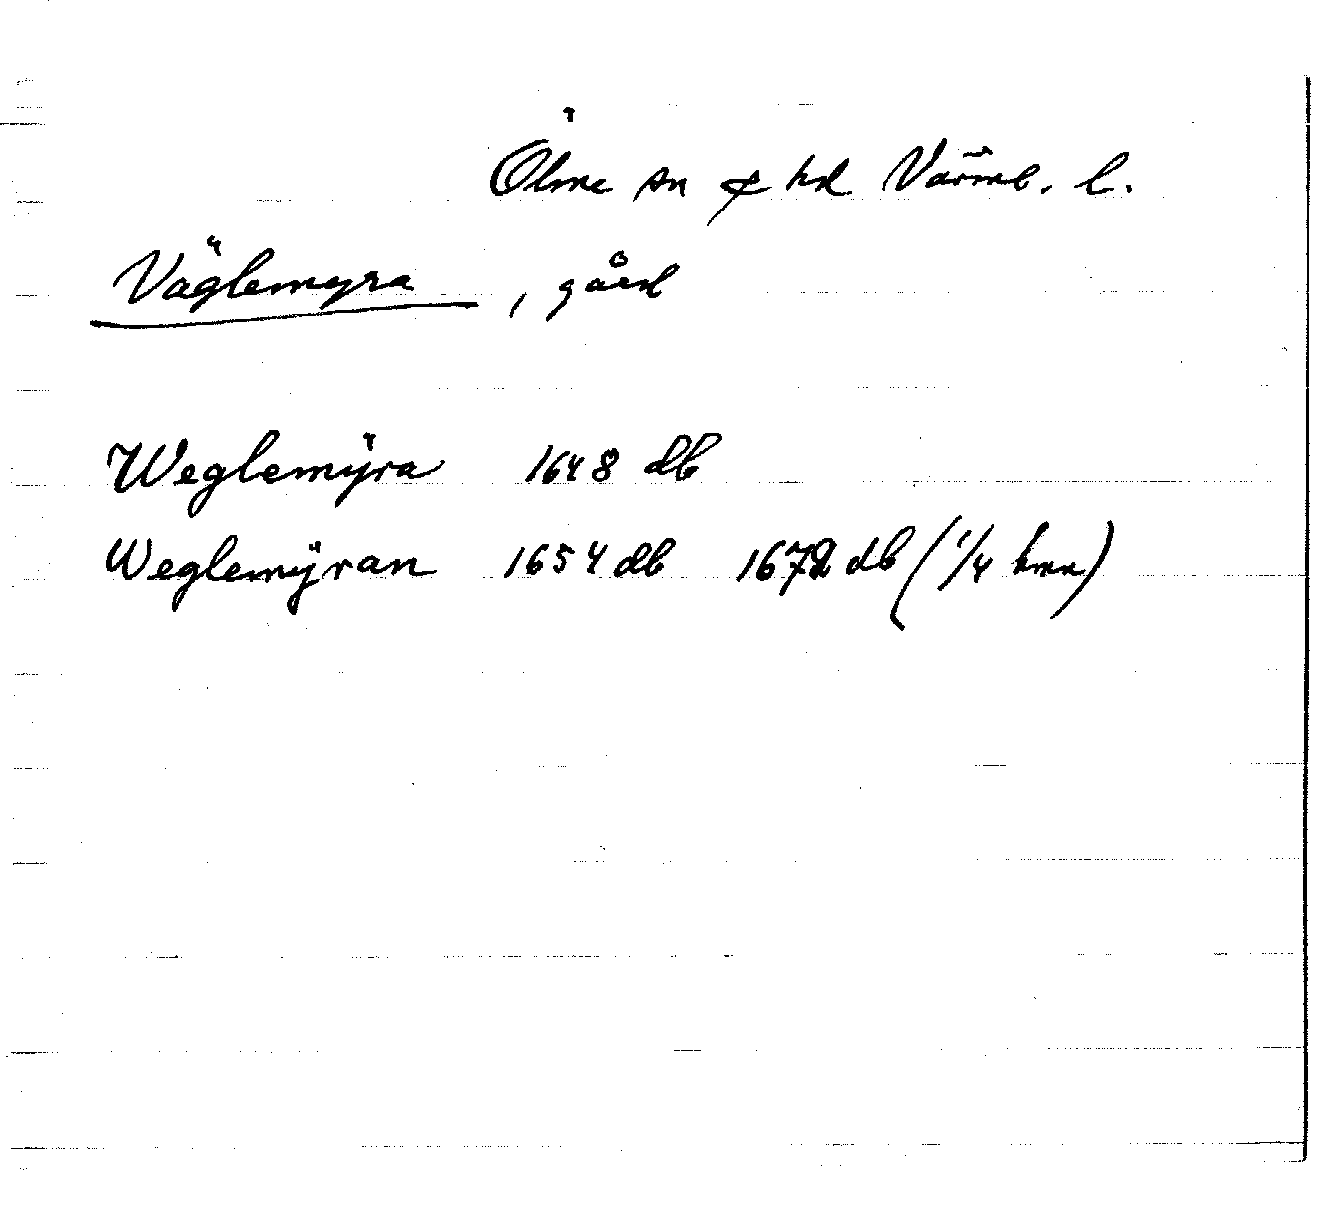 Ölme sn & hd Värml. l.
Väglemyra, gård
Weglemÿra 1648 db
Weglemÿran 1654 db 1672 db (1/4 hmn)